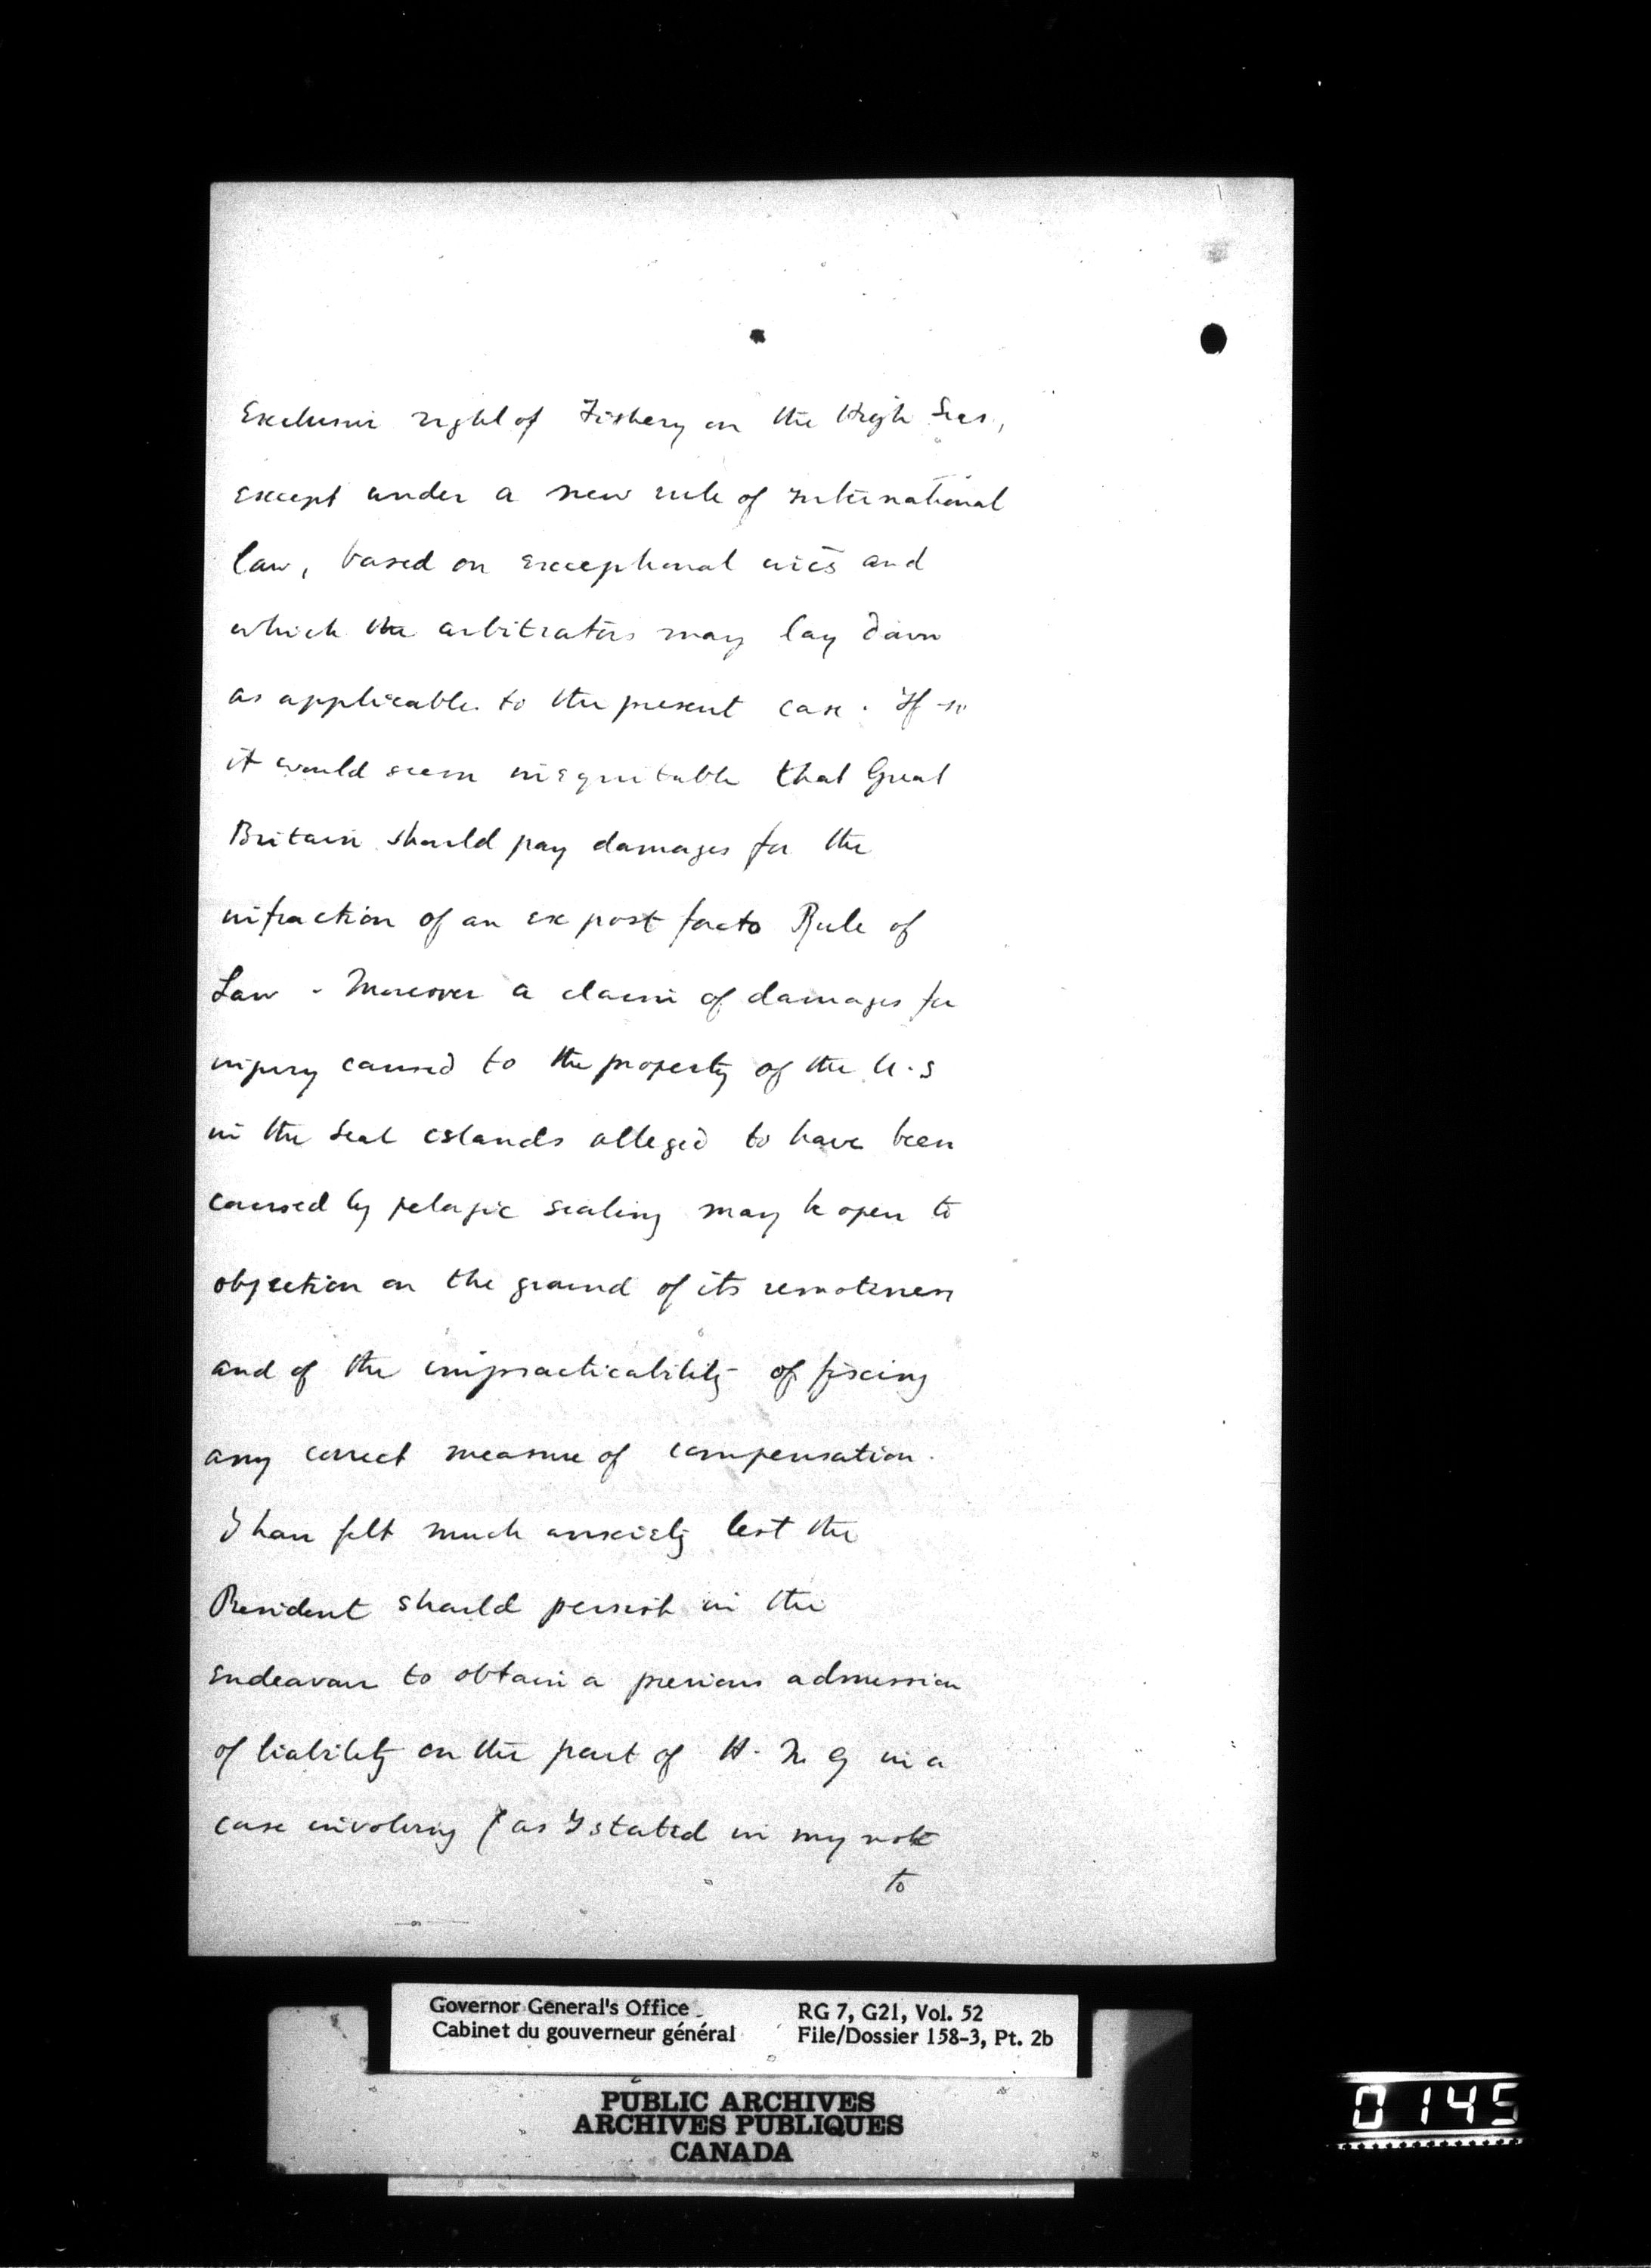 Exclusive right of Fishery on the High Seas,
except under a new rule of international
law, based on exceptional and
which the arbitrators may lay down
as applicable to the present case. If so
it would seem inequitable that Great
Britain should pay damages for the
infraction of an ex post facto Rule of
Law. Moreover a claim of damages for
injury caused to the property of the U.S
in the Seal Islands alleged to have been
caused by pelagic sealing may be open to
objection on the ground of its remoteness
and of the impracticability of fixing
any correct measure of compensation.
I have felt much anxiety lest the
President should persist in the
endeavour to obtain a previous admission
of liability on the part of H. M. G in a
case involving (as I stated in my note
to
Governor General's Office
Cabinet du gouverneur général
RG 7, G21, Vol. 52
File/Dossier 158-3, Pt. 2b
PUBLIC ARCHIVES
ARCHIVES PUBLIQUES
CANADA
0145